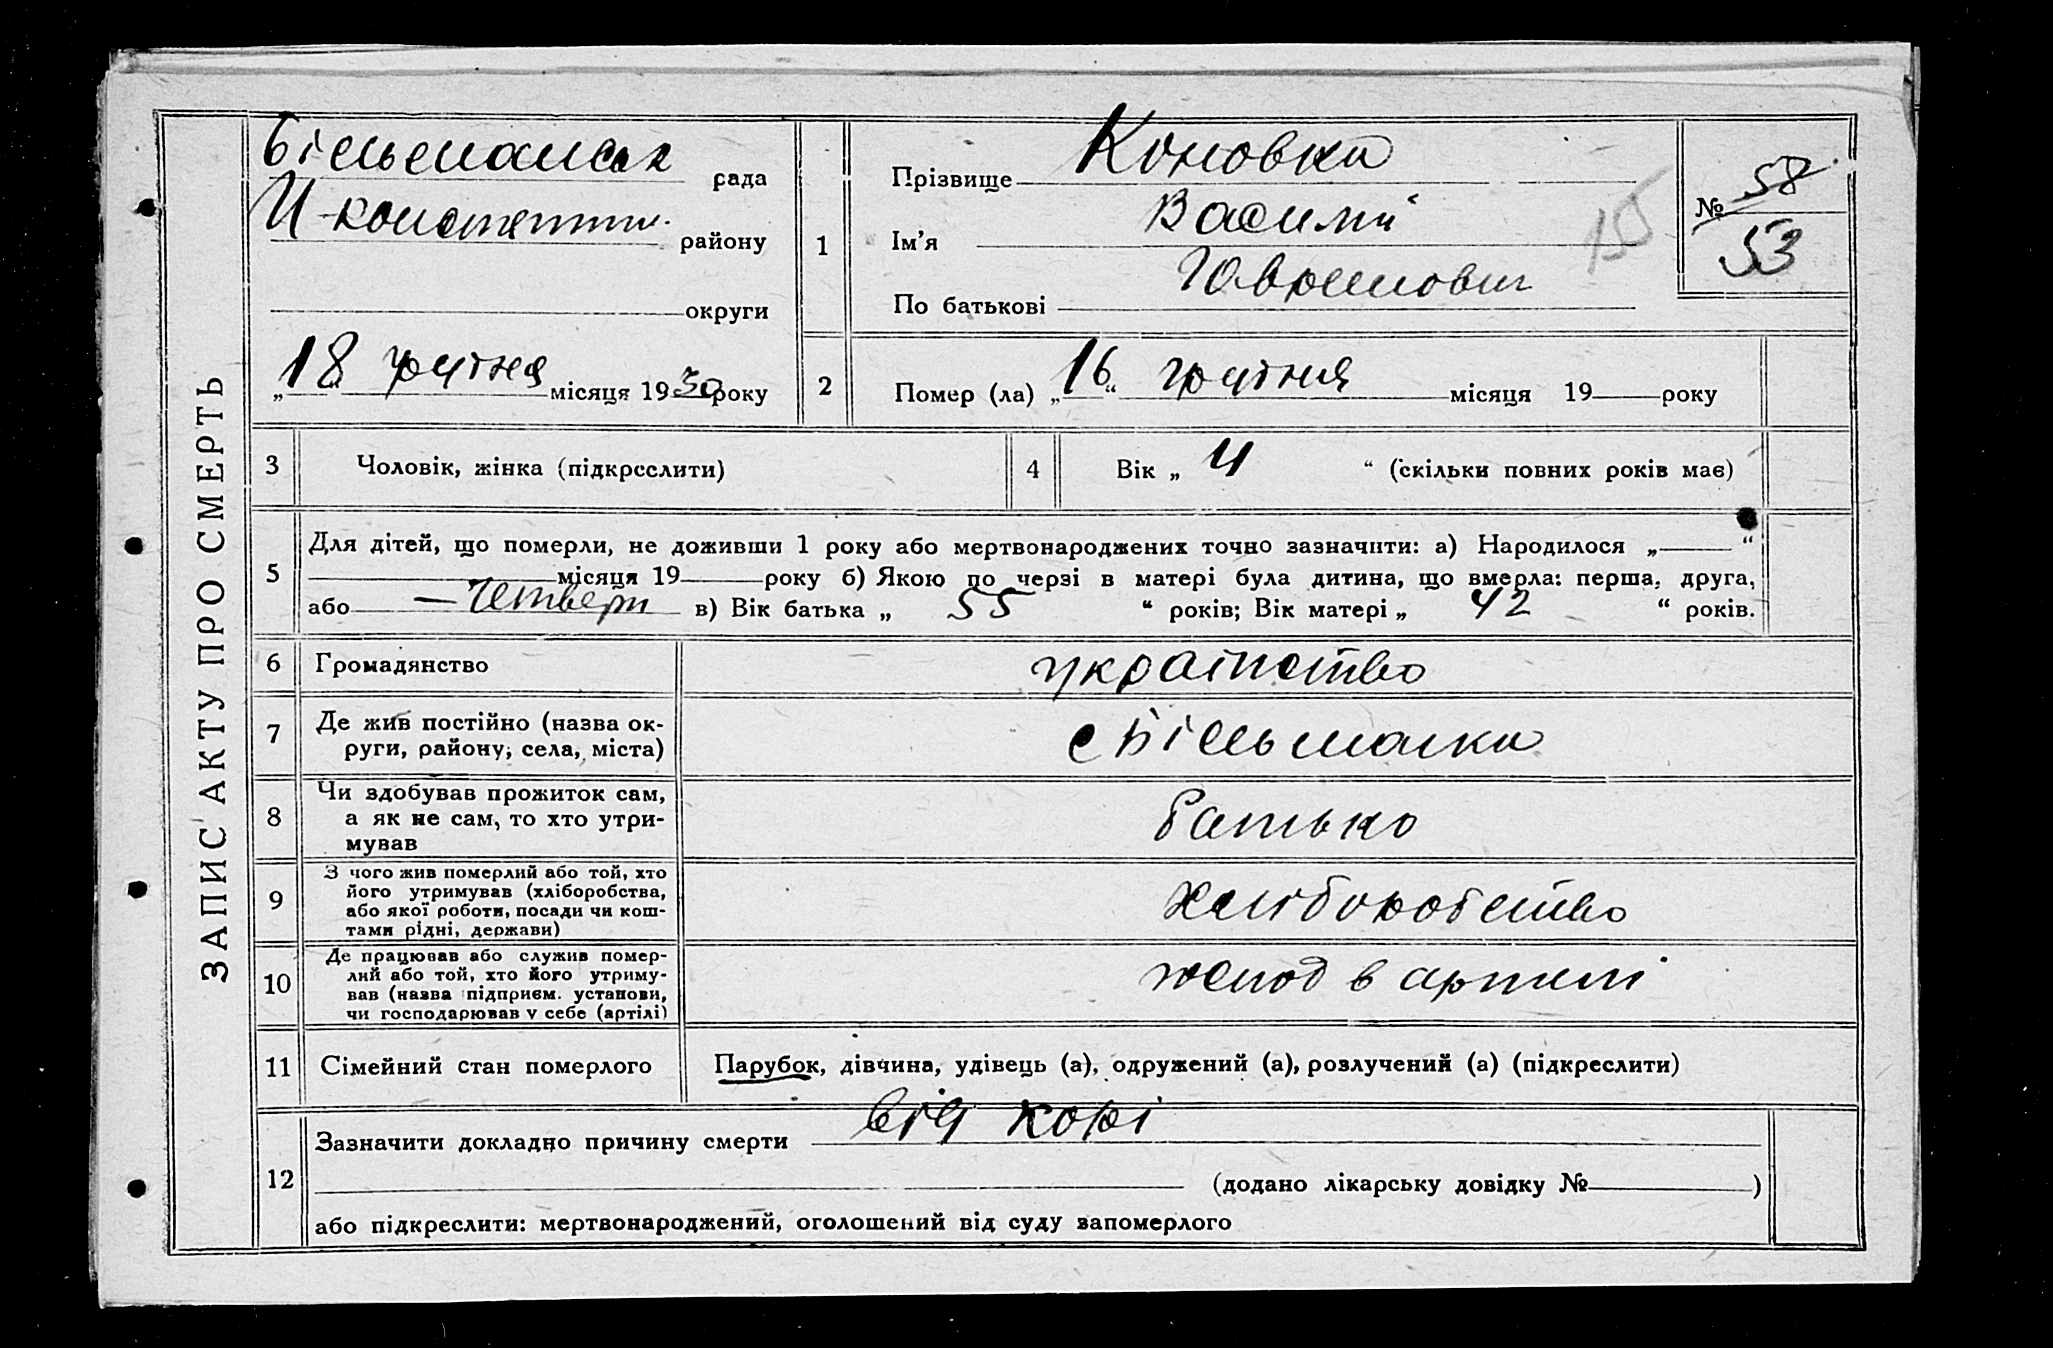 ЗАПИС АКТУ ПРО СМЕРТЬ
Більманськ рада
району
округи
„18 грудня місяця 1930 року
1
Прізвище Коновка
Ім’я Василий
По батькові
№ 58
53
15
2
Помер (ла) „16“ грудня місяця 19 року
3
Чоловік, жінка (підкреслити)
4
Вік „ 4 “ (скільки повних років має)
5
Для дітей, що померли, не доживши 1 року або мертвонароджених точно зазначити: а) Народилося „ “
місяця 19 року б) Якою по черзі в матері була дитина, що вмерла: перша, друга,
або — Четверт в) Вік батька „ 55 “ років; Вік матері „ 42 “ років.
6
Громадянство
українство
7
Де жив постійно (назва ок-
руги, району, села, міста)
с Більманка
8
Чи здобував прожиток сам,
а як не сам, то хто утри-
мував
батько
9
З чого жив померлий або той, хто
його утримував (хліборобства,
або якої роботи, посади чи кош-
тами рідні, держави)
хліборобство
10
Де працював або служив помер-
лий або той, хто його утриму-
вав (назва підприєм. установи,
чи господарював у себе (артілі)
в артилі
11
Сімейний стан померлого
Парубок, дівчина, удівець (а), одружений (а), розлучений (а) (підкреслити)
12
Зазначити докладно причину смерти від корі
(додано лікарську довідку № )
або підкреслити: мертвонароджений, оголошений від суду запомерлого